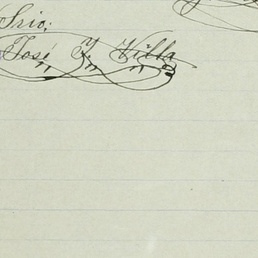 Srio:
José T. Villa